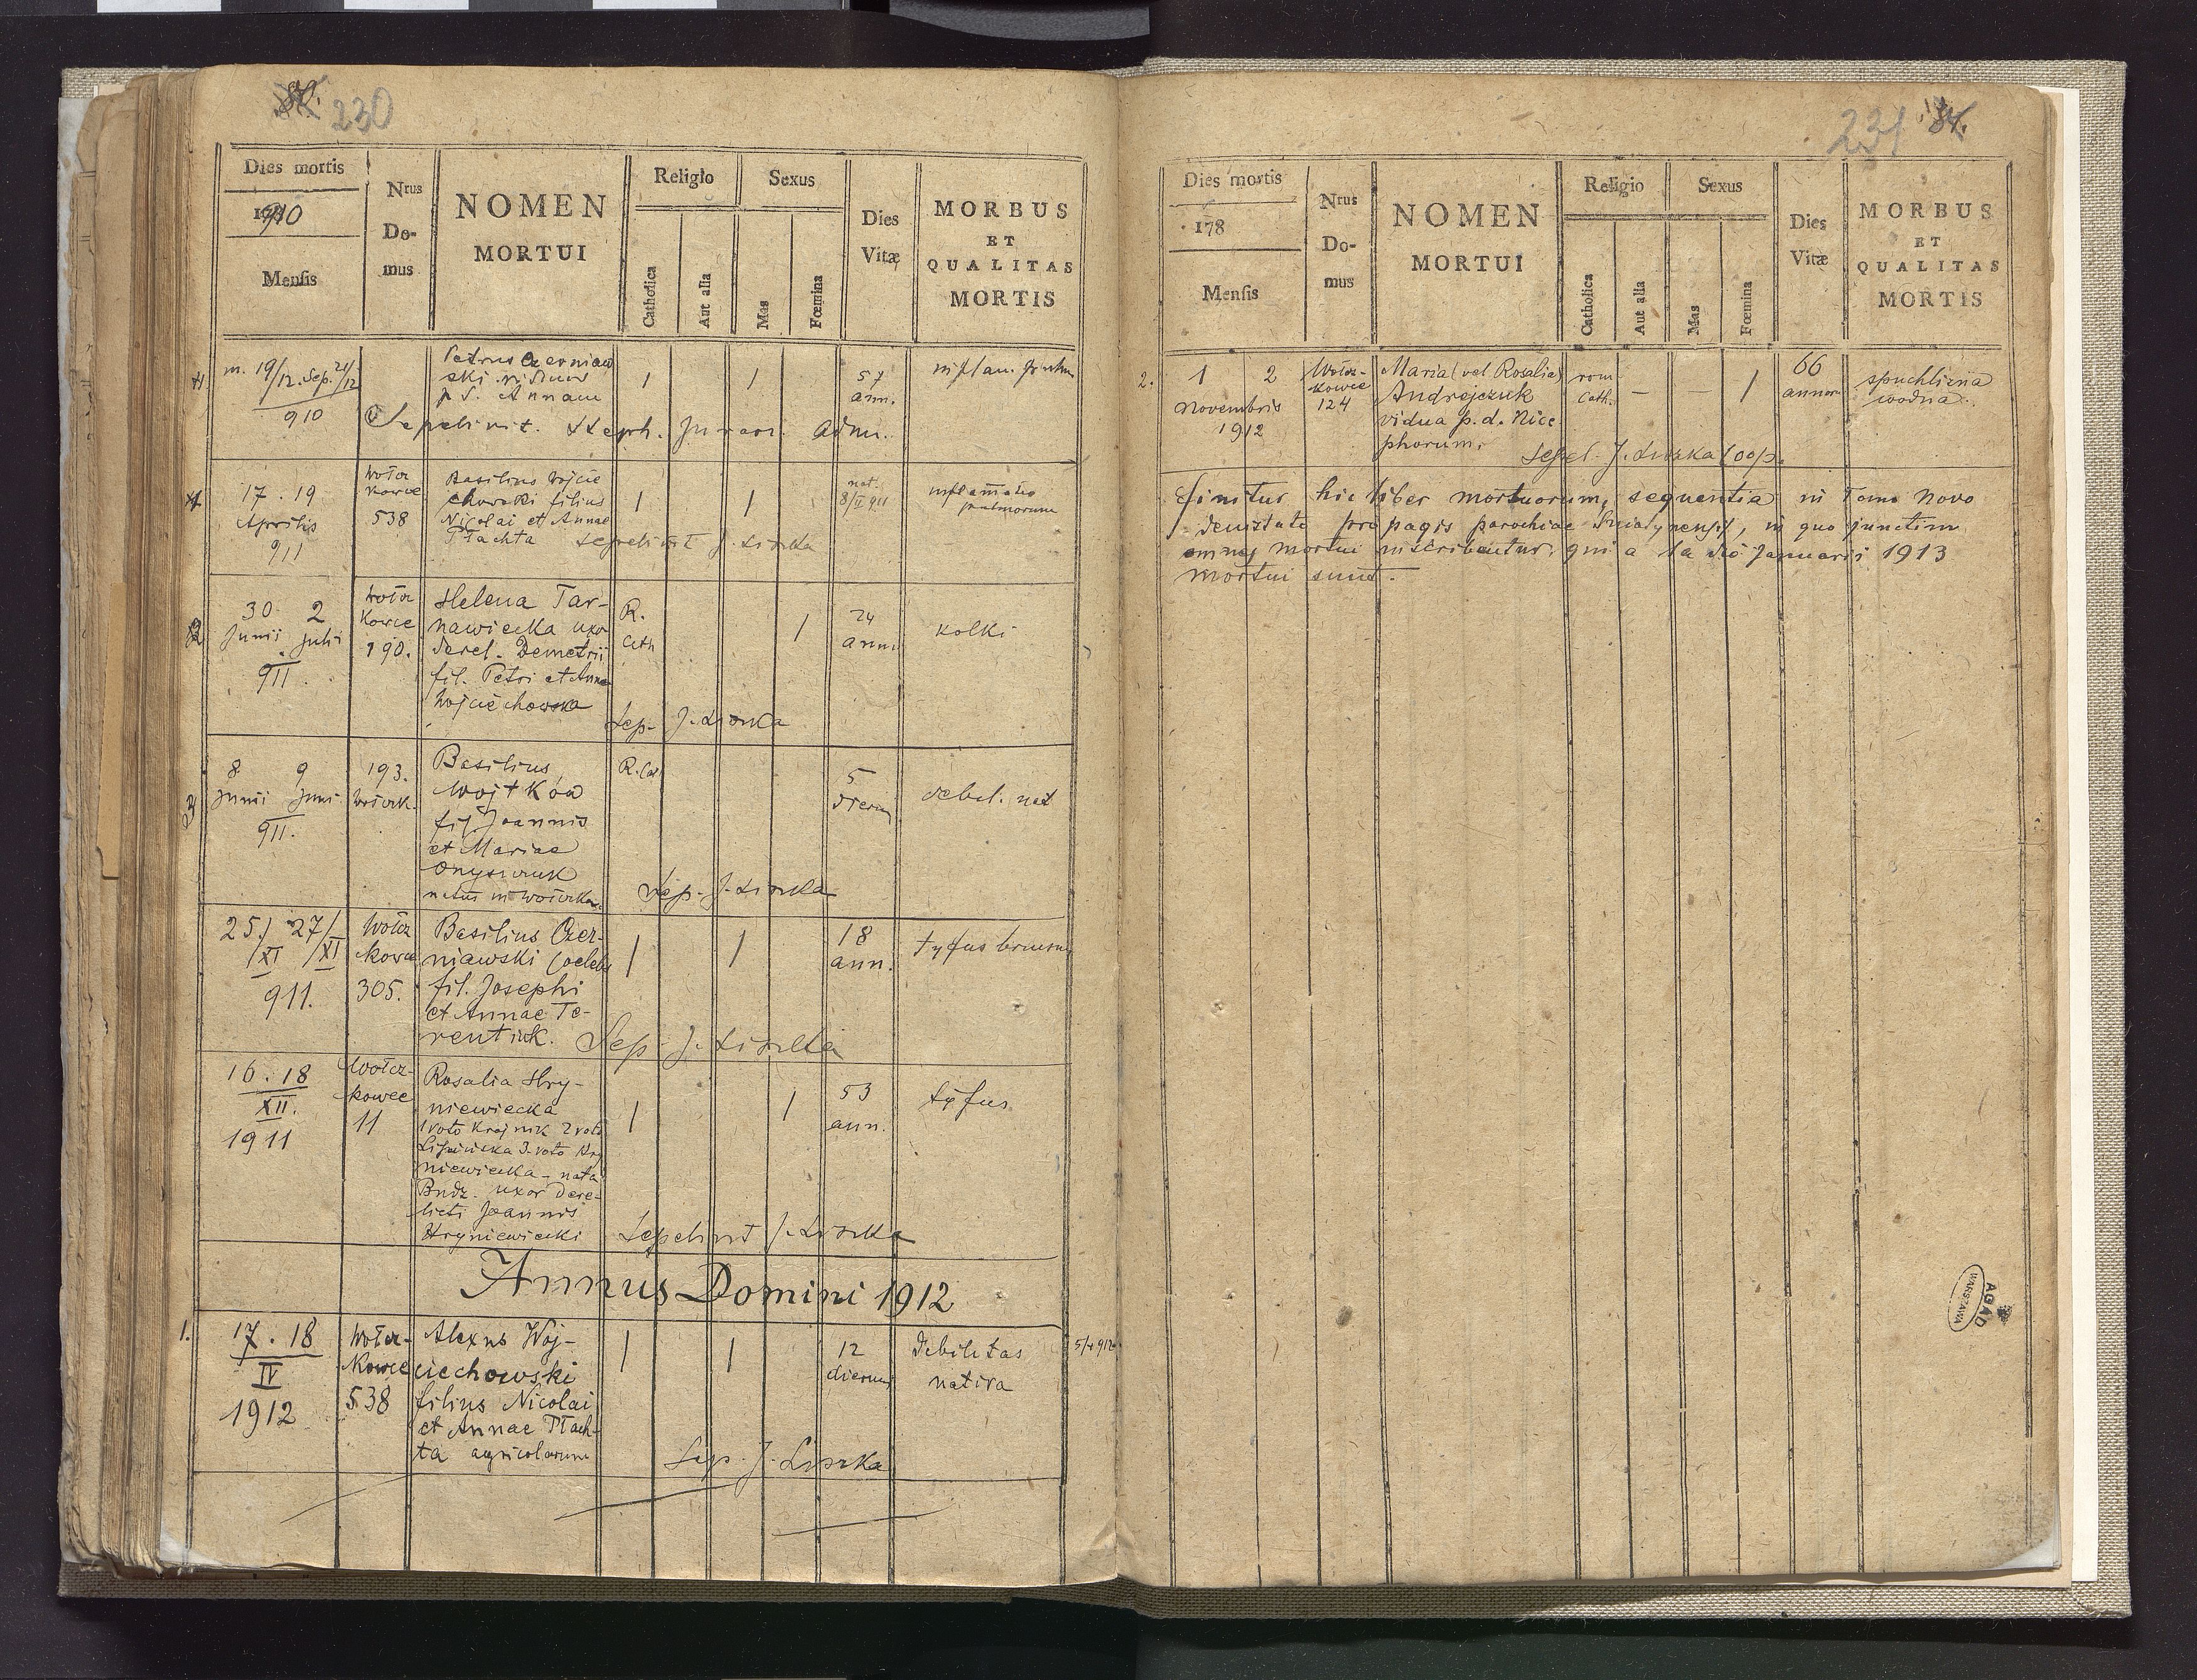 230
Dies mortis
1910
Mensis
Nrus
Do-
mus
NOMEN
MORTUI
Religio
Catholica
Aut alia
Sexus
Mas
Fœmina
Dies
Vitæ
MORBUS
ET
QUALITAS
MORTIS
m. 19/12. Sep. 21/12
910
Petrus Czerniaw
ski viduus
p S. Annam
1
1
57
ann.
Sepelivit. Steph. adm.
17 . 19
Aprilis
911
Wołcz
kowce
538
Basilius Wojcie
chowski filius
Nicolai et Annae
Płachta sepelivit J. Liszka
1
1
nat.
8/II 911
inflamatio
pulmorum
30 2
Junii Julii
911
Wołcz
kowce
190.
Helena Tar-
nawiecka uxo
derel. Demetrii
fil. Petri et Annae
Wojciechowska
R.
Cath
1
24
ann.
kolki
Sep. J. Liszka
3
8 9
Junii Juni
911.
193.
Wołczk.
Basilius
Wojtków
fil. Joannis
et Mariae
Onysczuk
natus in Wołczkow.
R. Cat
5
dierum
debil. nat
Sep. J. Liszka
25/XI 27/XI
911.
Wołcz
kowce
305.
Basilius Czer-
niawski coelebs
fil. Josephi
et Annae Te-
rentiuk.
1
1
18
ann.
tyfus brzuszny
Sep. J. Liszka
16 . 18
XII.
1911
Wołcz-
kowce
11
Rosalia Hry-
niewiecka
1 voto Krajnik 2 voto
Lipnicka 3. voto Hry
niewiecka - nata
Budz. uxor dere-
licti Joannis
Hryniewiecki
1
1
53
ann.
tyfus
Sepelivit J. Liszka
Annus Domini 1912
1.
17 . 18
IV
1912
Wołcz-
kowce
538
Alexus Woj-
ciechowski
filius Nicolai
et Annae Płach-
ta agricolarum
1
1
12
dierum
Debilitas
nativa
5/4 912
Sep. J. Liszka
231
84.
Dies mortis
178
Mensis
Nrus
Do-
mus
NOMEN
MORTUI
Religio
Catholica
Aut alia
Sexus
Mas
Fœmina
Dies
Vitæ
MORBUS
ET
QUALITAS
MORTIS
2.
1 2
Novembris
1912
Wołcz-
kowce
124
Maria (vel Rosalia)
Andrejczuk
vidua p. d. Nice
phorum.
rom
Cath.
—
—
1
66
annor
spuchlizna
wodna.
Sepel. J. Liszka Coop.
Finitur hic liber mortuorum, sequentia in Tomo Novo
pro pagis parochiae Sniatynensis, in quo junctim
omnes mortui inscribentur, qui a 1a die Januarii 1913
mortui sunt.
AGAD
WARSZAWA